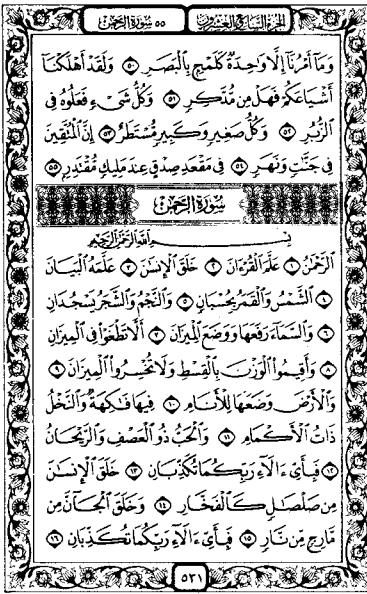 الجزء السابع والعشرون ٥٥ سورة الرحمن
وَمَآ أَمْرُنَآ إِلَّا وَٰحِدَةٌ كَلَمْحٍۭ بِٱلْبَصَرِ ٥٠ وَلَقَدْ أَهْلَكْنَآ
أَشْيَاعَكُمْ فَهَلْ مِن مُّدَّكِرٍ ٥١ وَكُلُّ شَىْءٍ فَعَلُوهُ فِى
ٱلزُّبُرِ ٥٢ وَكُلُّ صَغِيرٍ وَكَبِيرٍ مُّسْتَطَرٌ ٥٣ إِنَّ ٱلْمُتَّقِينَ
فِى جَنَّٰتٍ وَنَهَرٍ ٥٤ فِى مَقْعَدِ صِدْقٍ عِندَ مَلِيكٍ مُّقْتَدِرٍۭ ٥٥
سُورَةُ الرَّحْمَٰن
بِسْمِ ٱللَّهِ ٱلرَّحْمَٰنِ ٱلرَّحِيمِ
ٱلرَّحْمَٰنُ ١ عَلَّمَ ٱلْقُرْءَانَ ٢ خَلَقَ ٱلْإِنسَٰنَ ٣ عَلَّمَهُ ٱلْبَيَانَ
٤ ٱلشَّمْسُ وَٱلْقَمَرُ بِحُسْبَانٍ ٥ وَٱلنَّجْمُ وَٱلشَّجَرُ يَسْجُدَانِ
٦ وَٱلسَّمَآءَ رَفَعَهَا وَوَضَعَ ٱلْمِيزَانَ ٧ أَلَّا تَطْغَوْا۟ فِى ٱلْمِيزَانِ
٨ وَأَقِيمُوا۟ ٱلْوَزْنَ بِٱلْقِسْطِ وَلَا تُخْسِرُوا۟ ٱلْمِيزَانَ ٩
وَٱلْأَرْضَ وَضَعَهَا لِلْأَنَامِ ١٠ فِيهَا فَٰكِهَةٌ وَٱلنَّخْلُ
ذَاتُ ٱلْأَكْمَامِ ١١ وَٱلْحَبُّ ذُو ٱلْعَصْفِ وَٱلرَّيْحَانُ
١٢ فَبِأَىِّ ءَالَآءِ رَبِّكُمَا تُكَذِّبَانِ ١٣ خَلَقَ ٱلْإِنسَٰنَ
مِن صَلْصَٰلٍ كَٱلْفَخَّارِ ١٤ وَخَلَقَ ٱلْجَآنَّ مِن
مَّارِجٍ مِّن نَّارٍ ١٥ فَبِأَىِّ ءَالَآءِ رَبِّكُمَا تُكَذِّبَانِ ١٦
٥٣١